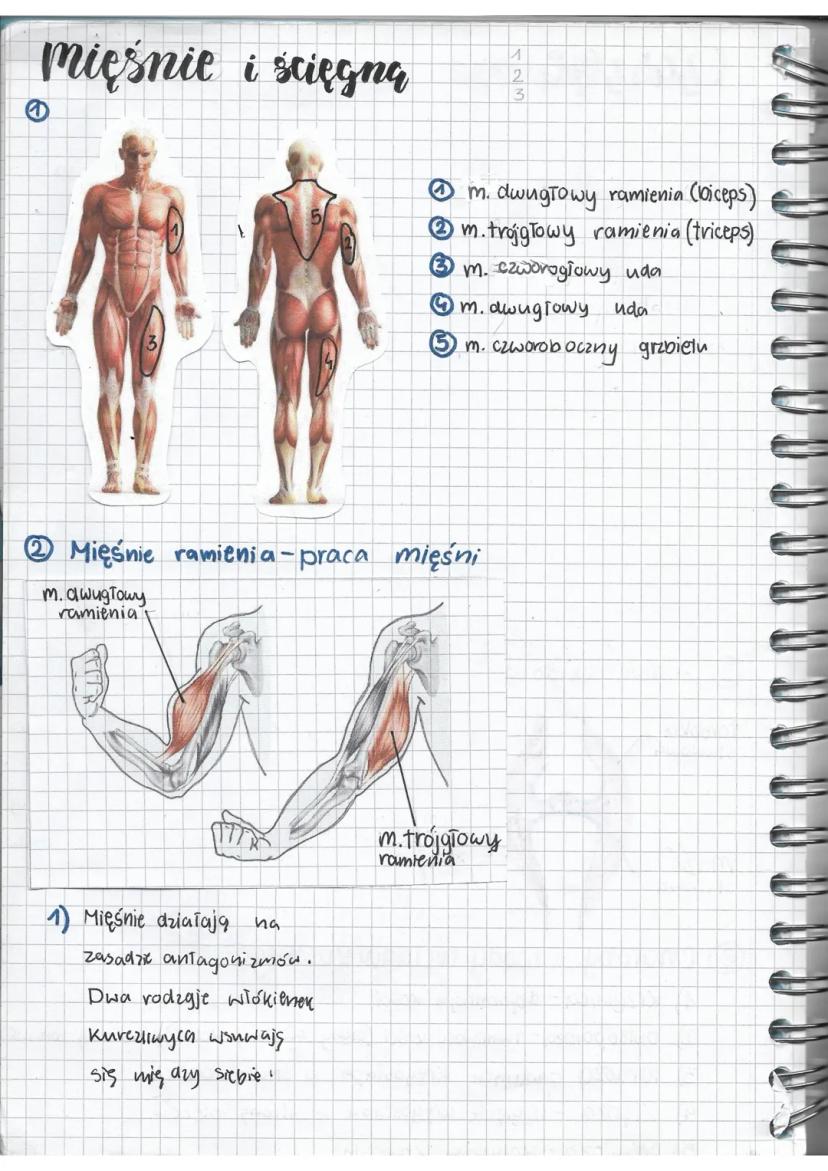 Mięśnie i ścięgna
1
2
3
①
1
3
5
2
4
① m. dwugłowy ramienia (biceps)
② m. trójgłowy ramienia (triceps)
③ m. czworogłowy uda
④ m. dwugłowy uda
⑤ m. czworoboczny grzbietu
② Mięśnie ramienia - praca mięśni
m. dwugłowy
ramienia
m. trójgłowy
ramienia
1) Mięśnie działają na
zasadzie antagonizmów.
Dwa rodzaje włókienek
kurczliwych wsuwają
się między siebie.